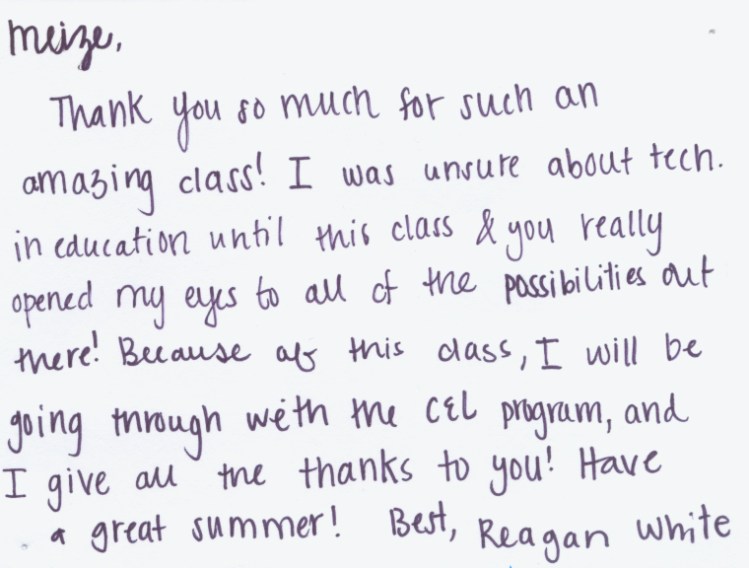 Meize,
Thank you so much for such an
amazing class! I was unsure about tech.
in education until this class & you really
opened my eyes to all of the possibilities out
there! Because of this class, I will be
going through with the CEL program, and
I give all the thanks to you! Have
a great summer! Best, Reagan White